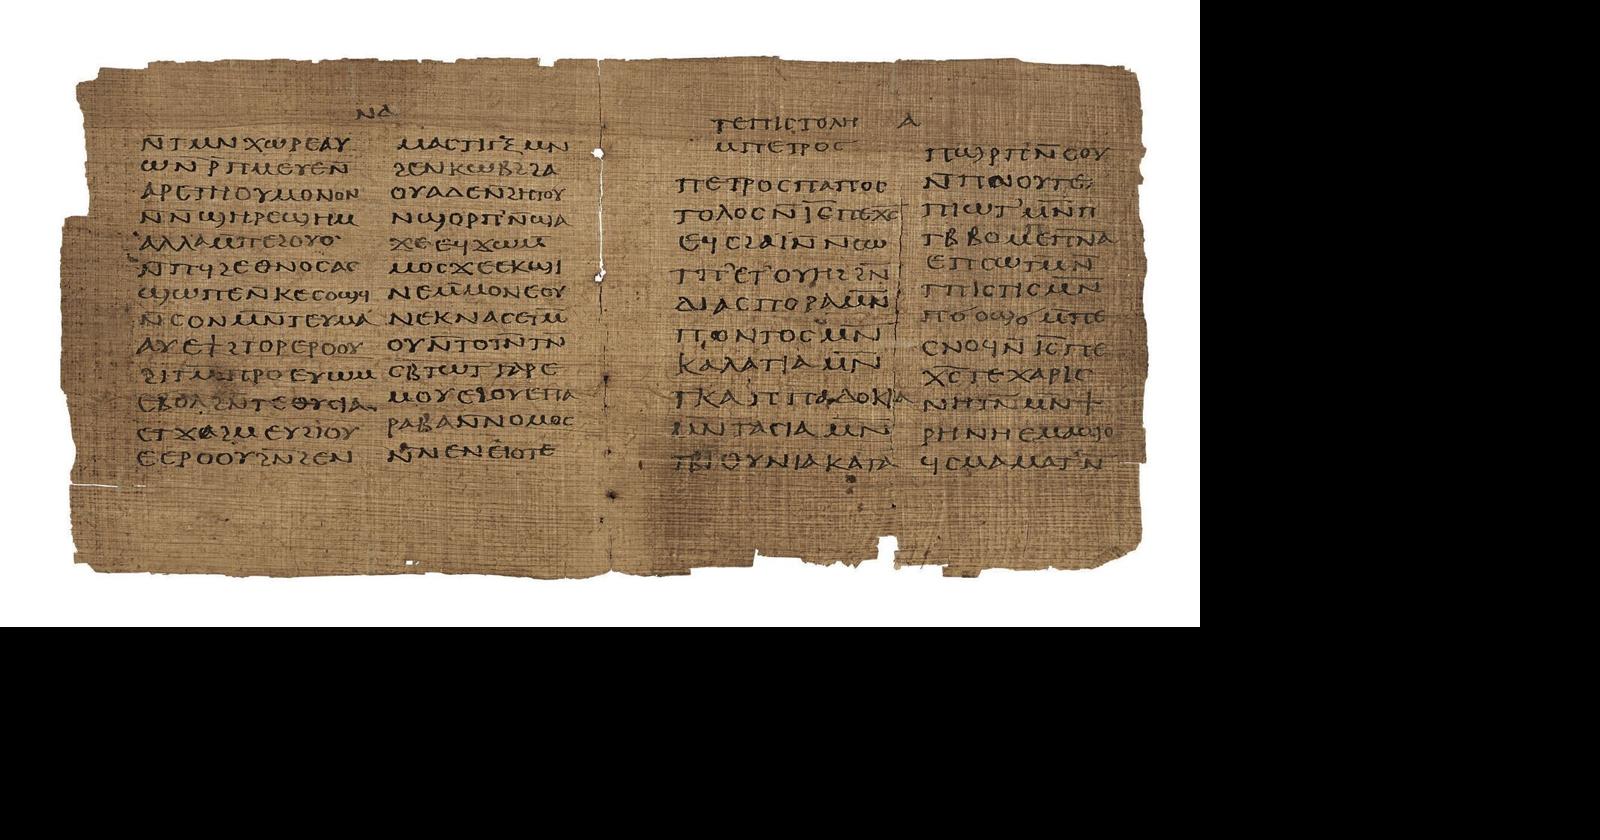 ⲛⲁ
ⲛ̄ⲧⲙⲛⲭⲱⲣⲉⲁⲩ
ⲱⲛⲣ̄ⲡⲙⲉⲩⲉⲛ̄
ⲁⲣⲉⲧⲏⲟⲩⲙⲟⲛⲟⲛ
ⲛ̄ⲛϣⲏⲣⲉϣⲏⲙ
ⲁⲗⲗⲁⲙ̄ⲡⲉϩⲟⲩⲟ
ⲙ̄ⲡϥϩⲉⲑⲛⲟⲥⲁⲥ
ϣⲱⲡⲉⲛⲕⲉⲥⲟϣϥ
ⲛ̄ⲥⲟⲛⲙⲛ̄ⲧⲉⲩⲙⲁ
ⲁⲩⲉϯϩⲧⲟⲣⲉⲣⲟⲟⲩ
ϩⲓⲧⲙ̄ⲡⲣ̄ⲣⲟⲉⲩⲱⲙ
ⲉⲃⲟⲗϩⲛ̄ⲧⲉⲑⲩⲥⲓⲁ
ⲉⲧϫⲁϩⲙⲉⲩϩⲓⲟⲩ
ⲉⲉⲣⲟⲟⲩϩⲛϩⲉⲛ
ⲙⲁⲥⲧⲓⲅⲝⲙⲛ
ϩⲉⲛⲕⲱⲃϩϩⲁ
ⲟⲩⲁⲇⲉⲛϩⲏⲧⲟⲩ
ⲛϣⲟⲣⲡ̄ⲛϣⲁ
ϫⲉⲉϥϫⲱⲙ
ⲙⲟⲥϫⲉⲉⲕϣⲓ
ⲛⲉⲙ̄ⲙⲟⲛⲉⲟⲩ
ⲛⲉⲕⲛⲁⲥⲉⲓⲙ
ⲟⲩⲛ̄ⲧⲟⲧⲛ̄ⲧⲛ
ⲥⲃ̄ⲧⲱⲧⲅⲁⲣⲉ
ⲙⲟⲩⲉϩⲟⲩⲉⲡⲁ
ⲣⲁⲃⲁⲛ̄ⲛⲟⲙⲟⲥ
ⲛ̄ⲛⲉⲛⲉⲓⲟⲧⲉ
ⲧⲉⲡⲓⲥⲧⲟⲗⲏ ⲁ
ⲙⲡⲉⲧⲣⲟⲥ
ⲡⲉⲧⲣⲟⲥⲡⲁⲡⲟⲥ
ⲧⲟⲗⲟⲥⲛ̄ⲓ̄ⲥ̄ⲡⲉⲭ̄ⲥ̄
ⲉϥⲥϩⲁⲓ̈ⲛ̄ⲛⲥⲱ
ⲧⲡ̄ⲉⲧⲟⲩⲏϩϩⲛ̄
ⲇⲓⲁⲥⲡⲟⲣⲁⲙⲛ̄
ⲡⲟⲛⲧⲟⲥⲙⲛ̄
ⲕⲁⲗⲁⲧⲓⲁⲙⲛ̄
ⲧⲕⲁⲡⲡⲁⲇⲟⲕⲓⲁ
ⲙⲛ̄ⲧⲁⲥⲓⲁⲙⲛ̄
ⲧⲃⲓⲑⲩⲛⲓⲁⲕⲁⲧⲁ
ⲡϣⲣⲡ̄ⲛ̄ⲥⲟⲩ
ⲛ̄ⲡⲛⲟⲩⲧⲉ
ⲡⲓⲱⲧ'ⲙⲛ̄ⲡ
ⲧⲃ̄ⲃⲟⲙ̄ⲡⲉⲡ̄ⲛ̄ⲁ
ⲉⲡⲥⲱⲧⲙ̄ⲛ̄
ⲧⲡⲓⲥⲧⲓⲥⲙⲛ
ⲡϭⲟϣϭϣⲙ̄ⲡⲉ
ⲥⲛⲟϥⲛ̄ⲓ̄ⲥ̄ⲡⲉ
ⲭ̄ⲥ̄ⲧⲉⲭⲁⲣⲓⲥ
ⲛⲏⲧⲛ̄ⲙⲛϯ
ⲣⲏⲛⲏⲉⲙⲁϣⲟ
ϥⲥⲙⲁⲙⲁⲧ'ⲛ̄